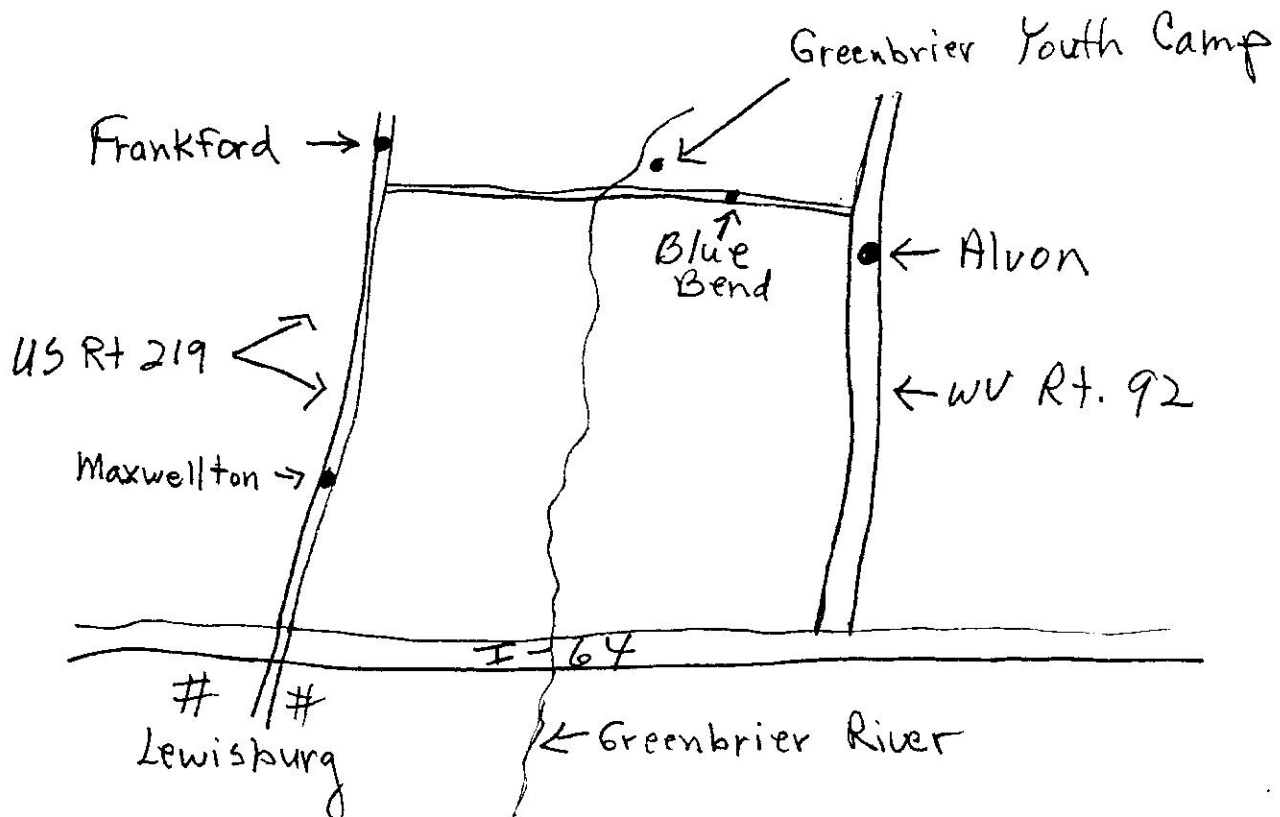 Greenbrier Youth Camp
Frankford
Blue
Bend
Alvon
US Rt 219
WV Rt. 92
Maxwellton
I-64
# #
Lewisburg
Greenbrier River